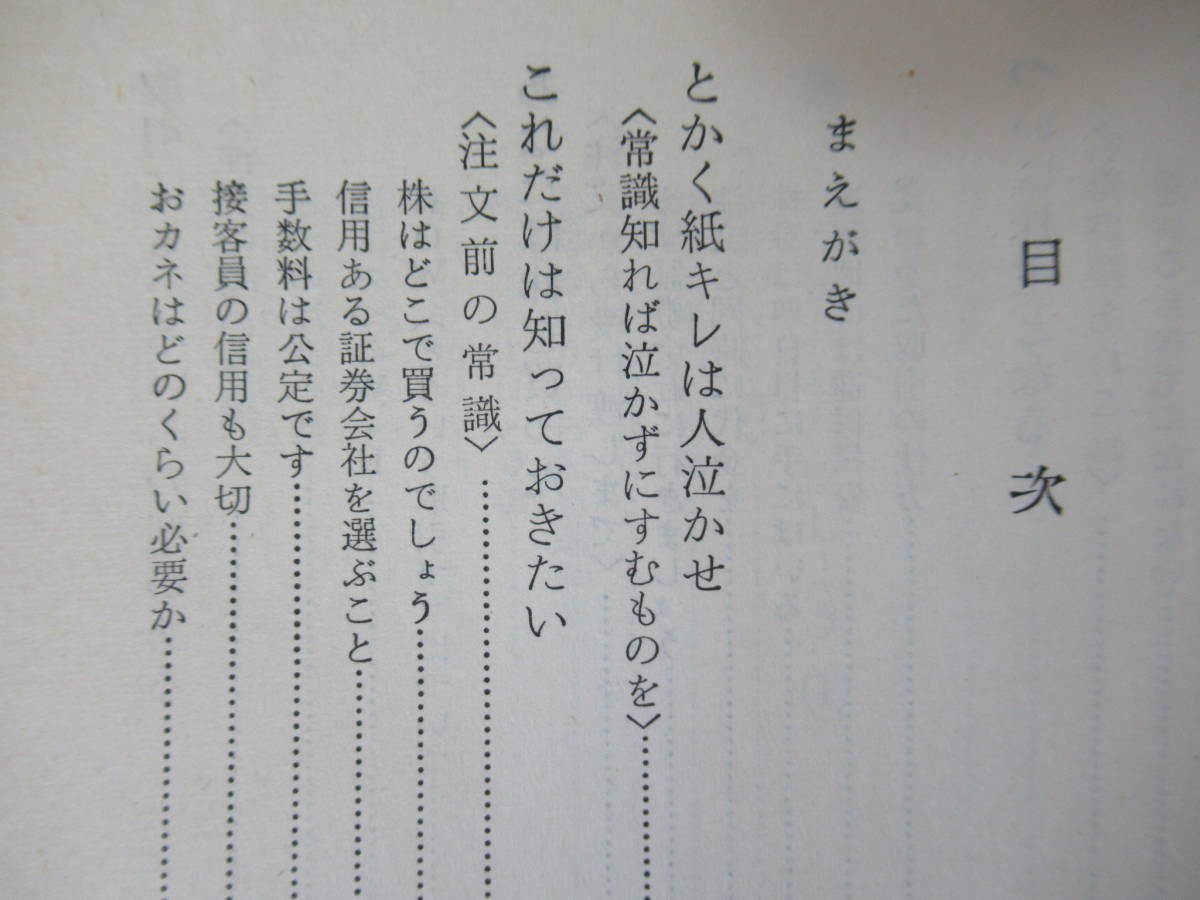 目次
まえがき
とかく紙キレは人泣かせ
〈常識知れば泣かずにすむものを〉
これだけは知っておきたい
〈注文前の常識〉
株はどこで買うのでしょう
信用ある証券会社を選ぶこと
手数料は公定です
接客員の信用も大切
おカネはどのくらい必要か